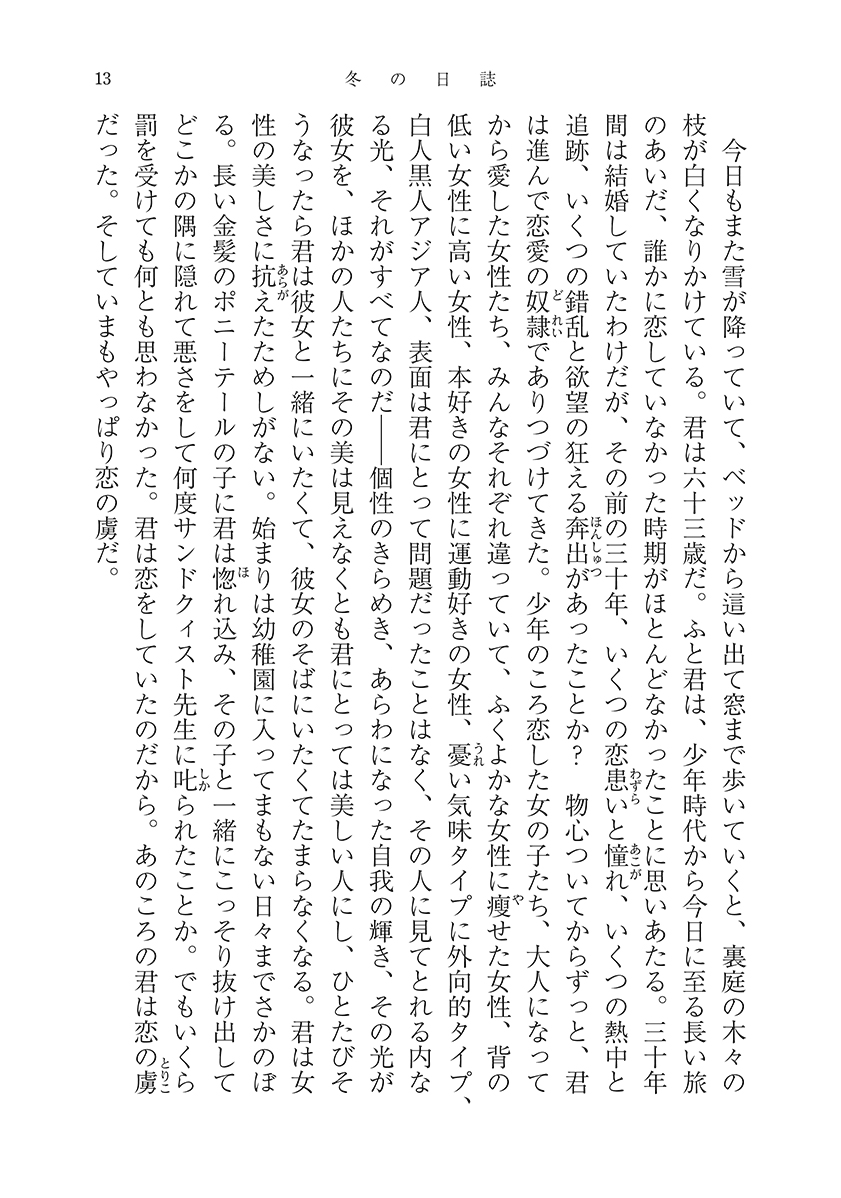 13
冬の日誌
今日もまた雪が降っていて、ベッドから這い出て窓まで歩いていくと、裏庭の木々の
枝が白くなりかけている。君は六十三歳だ。ふと君は、少年時代から今日に至る長い旅
のあいだ、誰かに恋していなかった時期がほとんどなかったことに思いあたる。三十年
間は結婚していたわけだが、その前の三十年、いくつの恋患いと憧れ、いくつの熱中と
追跡、いくつの錯乱と欲望の狂える奔出があったことか? 物心ついてからずっと、君
は進んで恋愛の奴隷でありつづけてきた。少年のころ恋した女の子たち、大人になって
から愛した女性たち、みんなそれぞれ違っていて、ふくよかな女性に瘦せた女性、背の
低い女性に高い女性、本好きの女性に運動好きの女性、憂い気味タイプに外向的タイプ、
白人黒人アジア人、表面は君にとって問題だったことはなく、その人に見てとれる内な
る光、それがすべてなのだ――個性のきらめき、あらわになった自我の輝き、その光が
彼女を、ほかの人たちにその美は見えなくとも君にとっては美しい人にし、ひとたびそ
うなったら君は彼女と一緒にいたくて、彼女のそばにいたくてたまらなくなる。君は女
性の美しさに抗えたためしがない。始まりは幼稚園に入ってまもない日々までさかのぼ
る。長い金髪のポニーテールの子に君は惚れ込み、その子と一緒にこっそり抜け出して
どこかの隅に隠れて悪さをして何度サンドクィスト先生に叱られたことか。でもいくら
罰を受けても何とも思わなかった。君は恋をしていたのだから。あのころの君は恋の虜
だった。そしていまもやっぱり恋の虜だ。